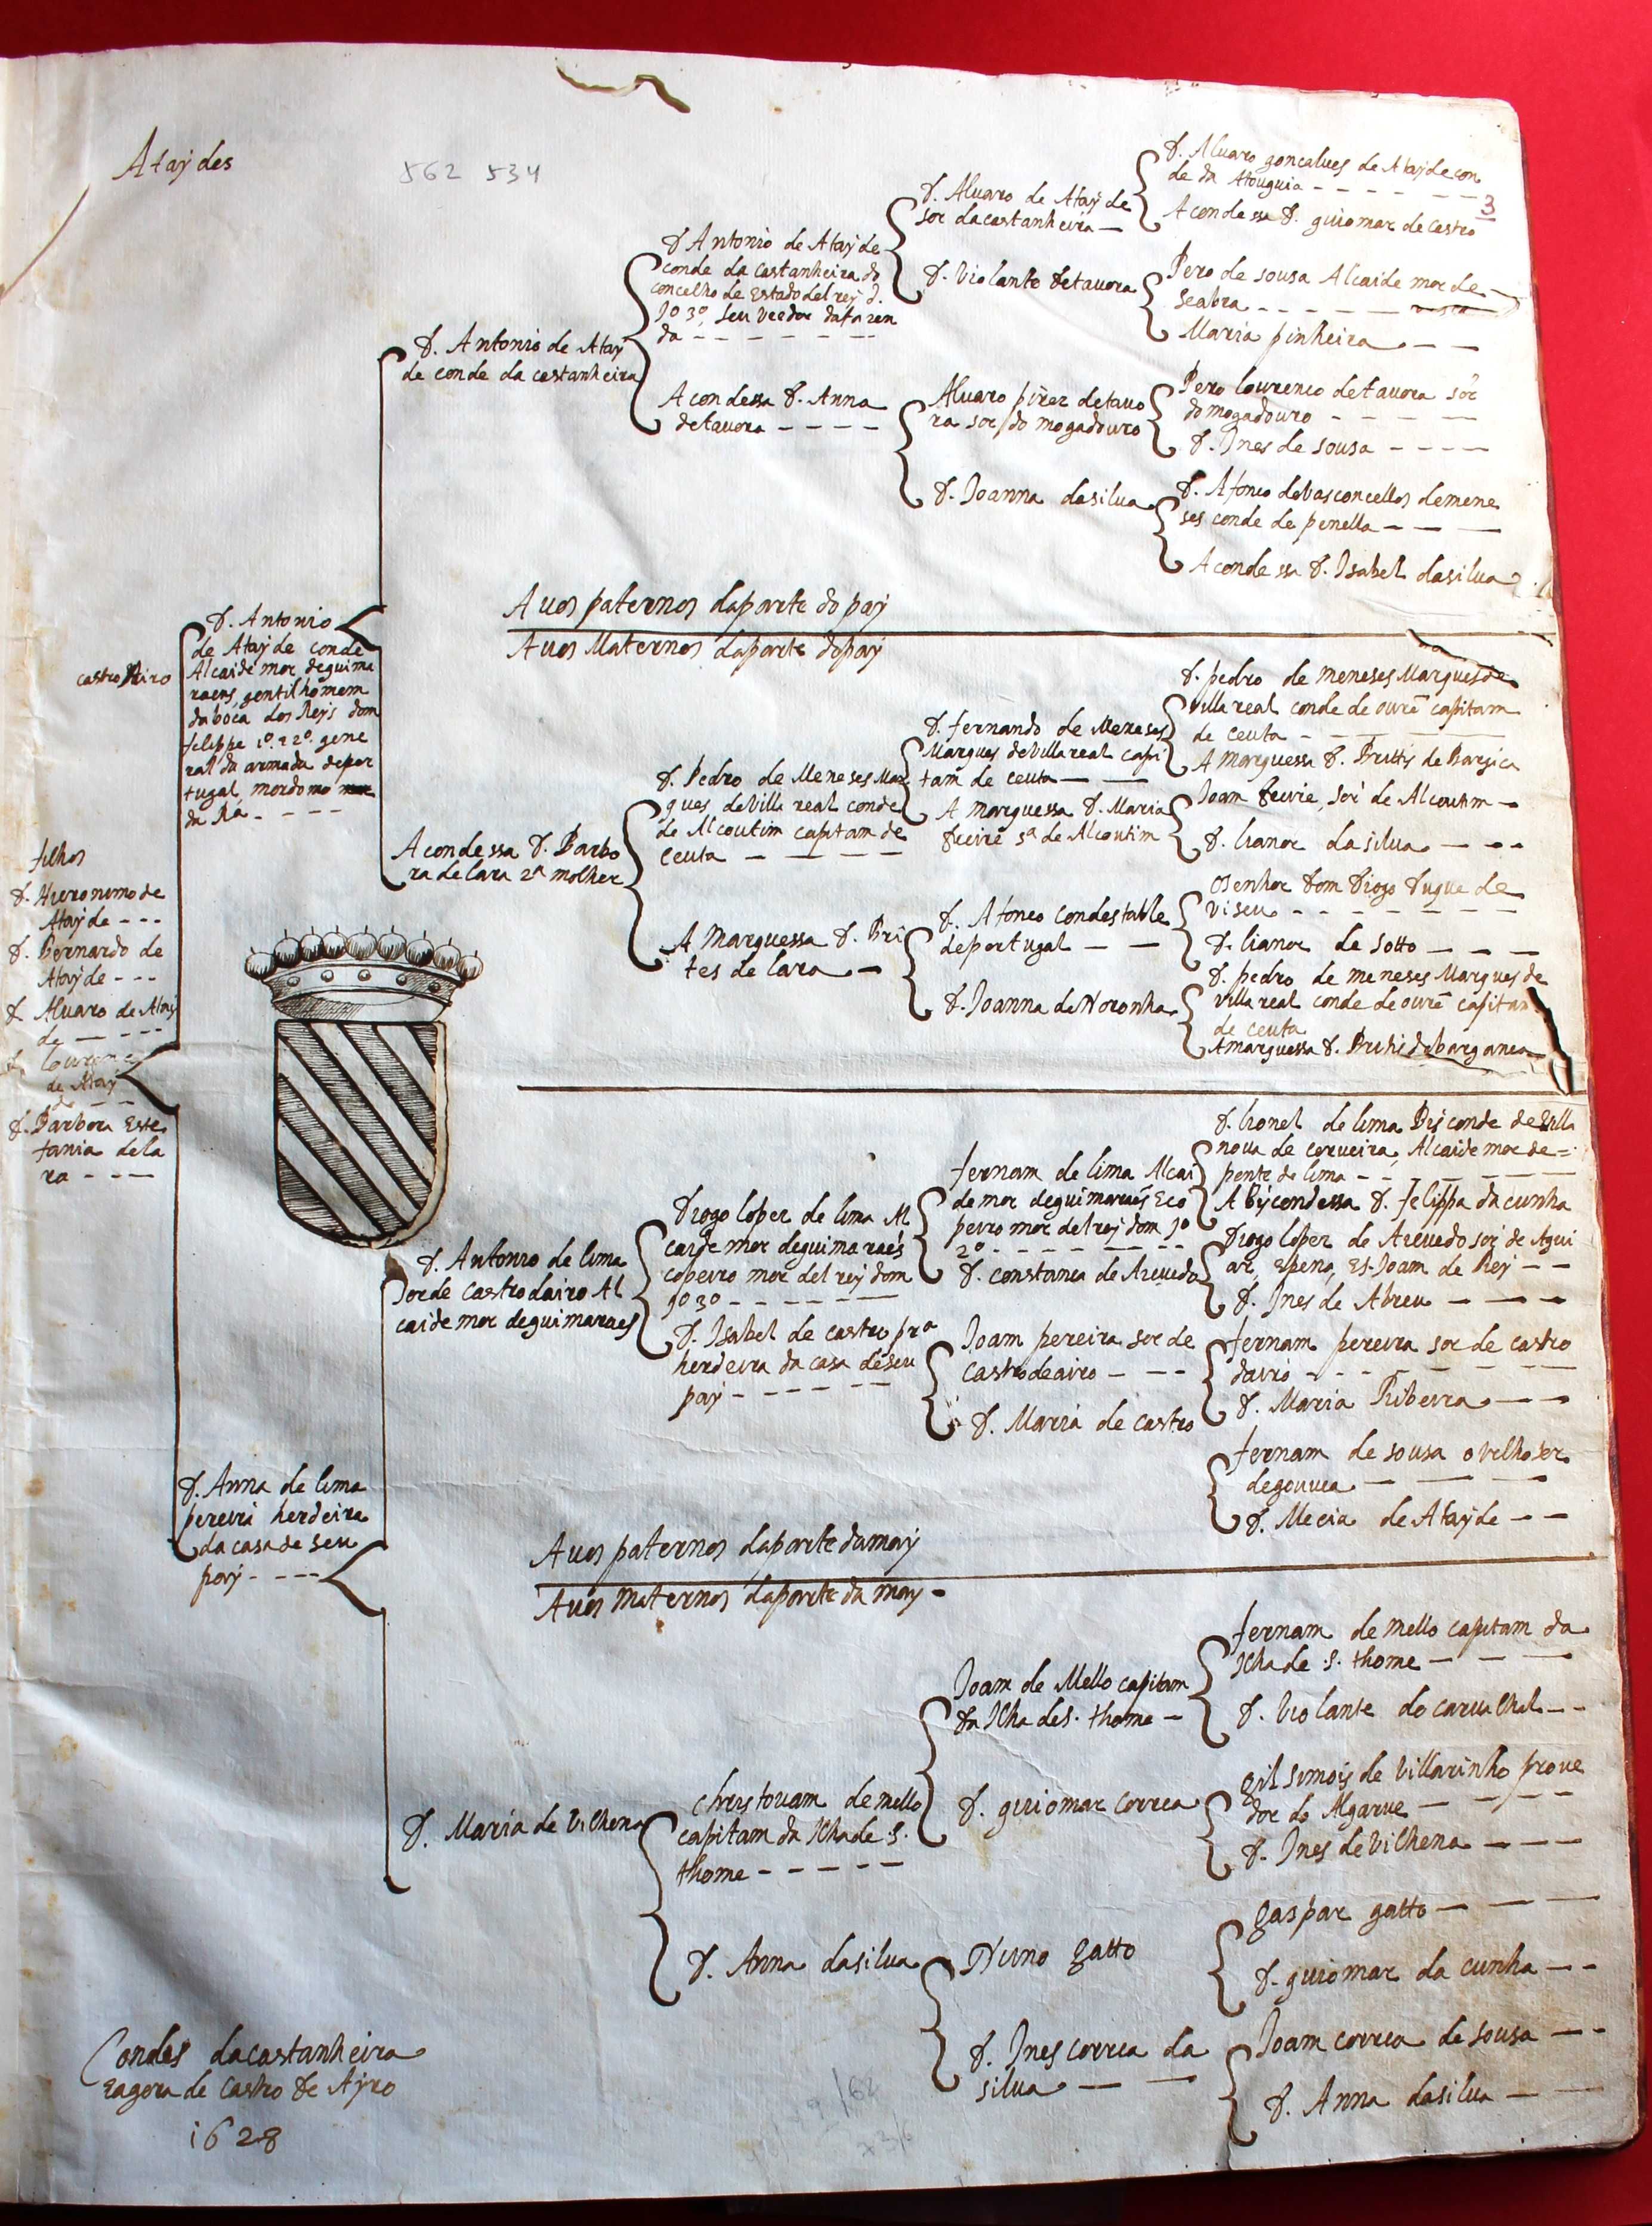 Ataÿdes
562 534
3
filhos
D. Hieronimo de
Ataÿde
D. Bernardo de
Ataÿde
D. Alvaro de Ataÿ
de
D. Lourenço
de Ataÿ
de
D. Barbora Este
fania de la
ra
castro Airo
D. Antonio
de Ataÿde conde
Alcaide mor de guima
raens, gentilhomem
da boca dos Reÿs dom
felippe 1º. e 2º. gene
ral da armada de por
tugal, mordomo mor
da Rª
D. Anna de lima
pereira herdeira
da casa de seu
paÿ
D. Antonio de Ataÿ
de conde da castanheira
A condessa D. Barbo
ra de lara 2ª molher
D. Antonio de lima
sor de castro dairo Al
caide mor de guimaraes
D. Maria de Vilhena
D. Antonio de Ataÿde
conde da castanheira do
concelho de Estado del reÿ d.
Jº 3º, seu veedor da fazen
da
A condessa D. Anna
de tavora
Avos paternos da parte do paÿ
Avos Maternos da parte do paÿ
D. Pedro de Meneses Mar
ques de Villa real conde
de Alcoutim capitam de
ceuta
A Marquessa D. Bri
tes de lara
Diogo lopez de lima Al
caide mor de guimaraes
copeiro mor del reÿ dom
Jº 3º
D. Isabel de castro prª
herdeira da casa de seu
paÿ
Avos paternos da parte da maÿ
Avos Maternos da parte da maÿ
christovam de mello
capitam da Ilha de S.
thome
D. Anna da silva
D. Alvaro de Ataÿde
sor da castanheira
D. Violante de tavora
Alvaro pirez de tavo
ra sor do mogadouro
D. Joanna da silva
D. fernando de Meneses
Marques de Villa real capi
tam de ceuta
A marquessa D. Maria
freire sª de Alcoutim
D. Afonço condestable
de portugal
D. Joanna de Noronha
fernam de lima Alcai
de mor de guimaraes E co
peiro mor del reÿ dom Jº
2º
D. constança de Azevedo
Joam pereira sor de
castro de airo
D. Maria de castro
Joam de Mello capitam
da Ilha de S. thome
D. guiomar correa
Nuno gatto
D. Ines correa da
silva
D. Alvaro gonçalves de Ataÿde con
de da Atouguia
A condessa D. guiomar de castro
Pero de sousa Alcaide mor de
seabra
Maria pinheira
Pero lourenço de tavora sor
do mogadouro
D. Ines de sousa
D. Afonço de Vasconcellos de mene
ses conde de penella
A condessa D. Isabel da silva
D. pedro de meneses Marques de
Villa real conde de ourẽ capitam
de ceuta
A Marquessa D. Brittis de Bargãça
Joam freire, sor de Alcoutim
D. lianor da silva
O senhor Dom Diogo Duque de
Viseu
D. lianor de Sotto
D. pedro de meneses Marques de
Villa real conde de ourẽ capitam
de ceuta
A marquessa D. Brittis de bargança
D. lionel de lima Bisconde de Villa
nova de cerveira, Alcaide mor de
ponte de lima
A Biscondessa D. felippa da cunha
Diogo lopez de Azevedo sor de Agui
ar, E pena, E S. Joam de Reÿ
D. Ines de Abreu
fernam pereira sor de castro
dairo
D. Maria Ribeira
fernam de sousa o velho sor
de gouvea
D. Mecia de Ataÿde
fernam de mello capitam da
Ilha de S. thome
D. Violante do carvalhal
gil simois de Villarinho prove
dor do Algarve
D. Ines de Vilhena
gaspar gatto
D. guiomar da cunha
Joam correa de sousa
D. Anna da silva
Condes da castanheira
E agora de Castro de Aÿro
1628